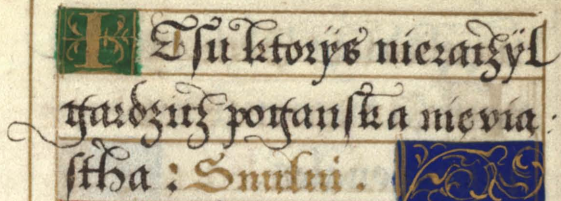 IEſu ktorÿs nieraċzÿl
gardziċz poganſka nievia:
ſtha: Smilui.